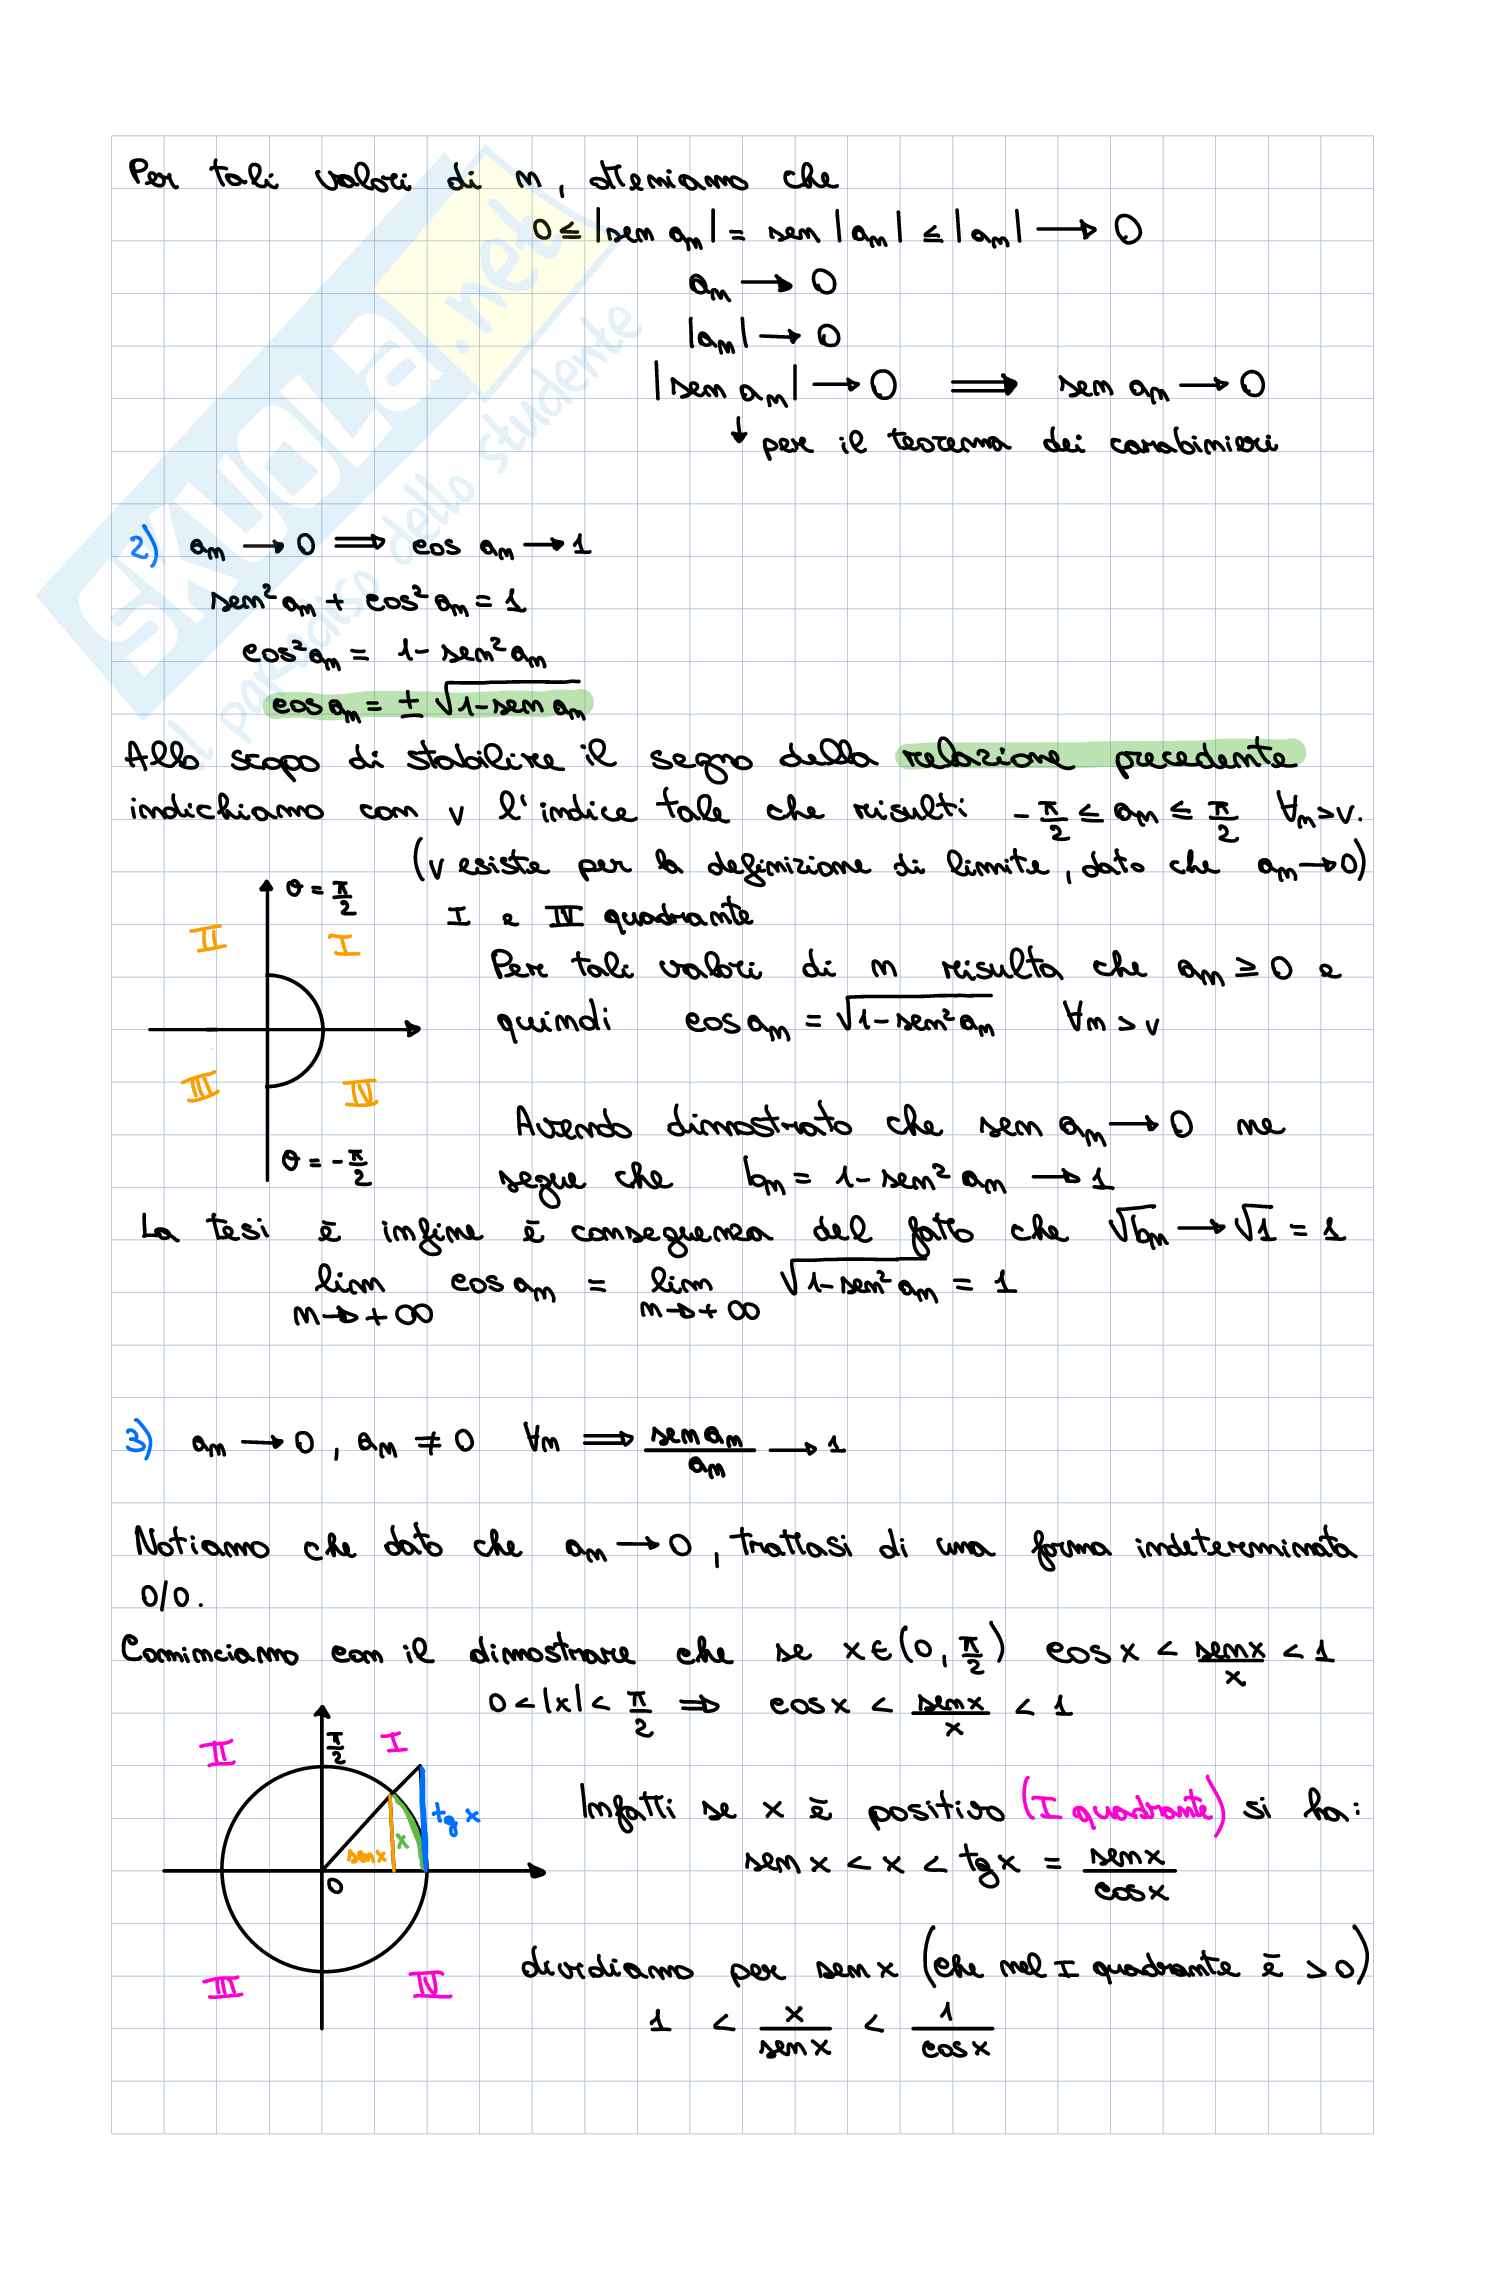 Per tali valori di n, otteniamo che
0 ≤ |sen aₙ| = sen |aₙ| ≤ |aₙ| → 0
aₙ → 0
|aₙ| → 0
|sen aₙ| → 0 ⟹ sen aₙ → 0
↓ per il teorema dei carabinieri
2) aₙ → 0 ⟹ cos aₙ → 1
sen² aₙ + cos² aₙ = 1
cos² aₙ = 1 - sen² aₙ
cos aₙ = ± √(1 - sen aₙ)
Allo scopo di stabilire il segno della relazione precedente
indichiamo con ν l'indice tale che risulti -π/2 ≤ aₙ ≤ π/2 ∀n > ν.
(ν esiste per la definizione di limite, dato che aₙ → 0)
θ = π/2
I e IV quadrante
II I
Per tali valori di n risulta che aₙ ≥ 0 e
quindi cos aₙ = √(1 - sen² aₙ) ∀n > ν
III IV
Avendo dimostrato che sen aₙ → 0 ne
θ = -π/2
segue che bₙ = 1 - sen² aₙ → 1
La tesi è infine è conseguenza del fatto che √bₙ → √1 = 1
lim n→+∞ cos aₙ = lim n→+∞ √(1 - sen² aₙ) = 1
3) aₙ → 0, aₙ ≠ 0 ∀n ⟹ sen aₙ / aₙ → 1
Notiamo che dato che aₙ → 0, trattasi di una forma indeterminata
0/0.
Cominciamo con il dimostrare che se x ∈ (0, π/2) cos x < sen x / x < 1
0 < |x| < π/2 ⟹ cos x < sen x / x < 1
II π/2 I
Infatti se x è positivo (I quadrante) si ha:
sen x x tg x
0
sen x < x < tg x = sen x / cos x
III IV
dividiamo per sen x (che nel I quadrante è > 0)
1 < x / sen x < 1 / cos x
SKUOLA.net
il paradiso dello studente